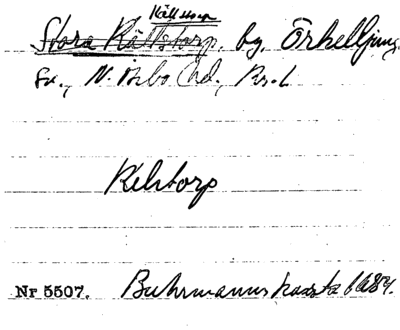 Källstorp
Stora Källstorp, by, Örkelljunga
sn., N. Åsbo hd, Kr. l.
Kelstorp
Nr 5507. Buhrmanns karta 1684.